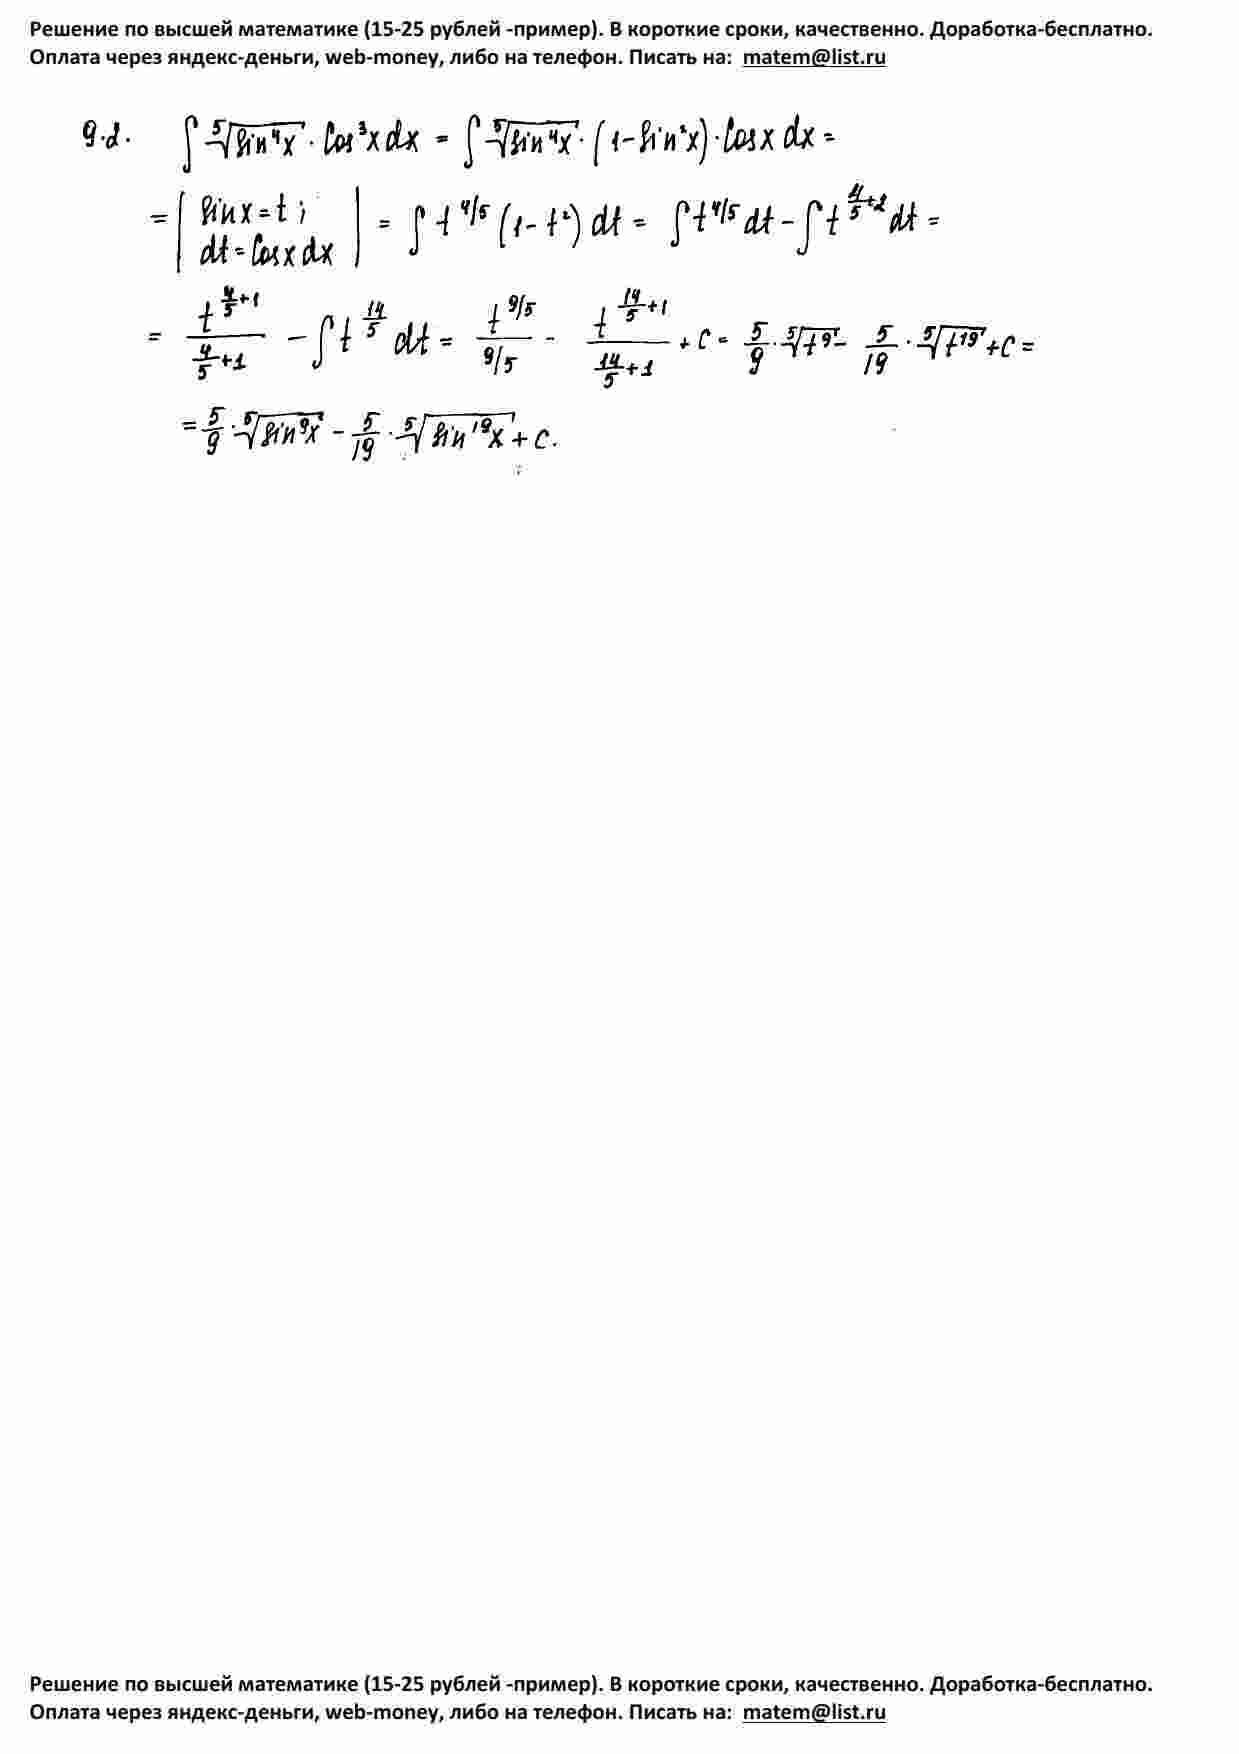 Решение по высшей математике (15-25 рублей -пример). В короткие сроки, качественно. Доработка-бесплатно.
Оплата через яндекс-деньги, web-money, либо на телефон. Писать на: matem@list.ru
9.2. ∫ ⁵√(sin⁴x) · Cos³x dx = ∫ ⁵√(sin⁴x) · (1 - sin²x) · Cos x dx =
= | sin x = t ; dt = Cos x dx | = ∫ t^(4/5) (1 - t²) dt = ∫ t^(4/5) dt - ∫ t^(4/5+2) dt =
= t^(4/5+1) / (4/5+1) - ∫ t^(14/5) dt = t^(9/5) / (9/5) - t^(14/5+1) / (14/5+1) + C = 5/9 · ⁵√(t⁹) - 5/19 · ⁵√(t¹⁹) + C =
= 5/9 · ⁵√(sin⁹x) - 5/19 · ⁵√(sin¹⁹x) + C.
Решение по высшей математике (15-25 рублей -пример). В короткие сроки, качественно. Доработка-бесплатно.
Оплата через яндекс-деньги, web-money, либо на телефон. Писать на: matem@list.ru